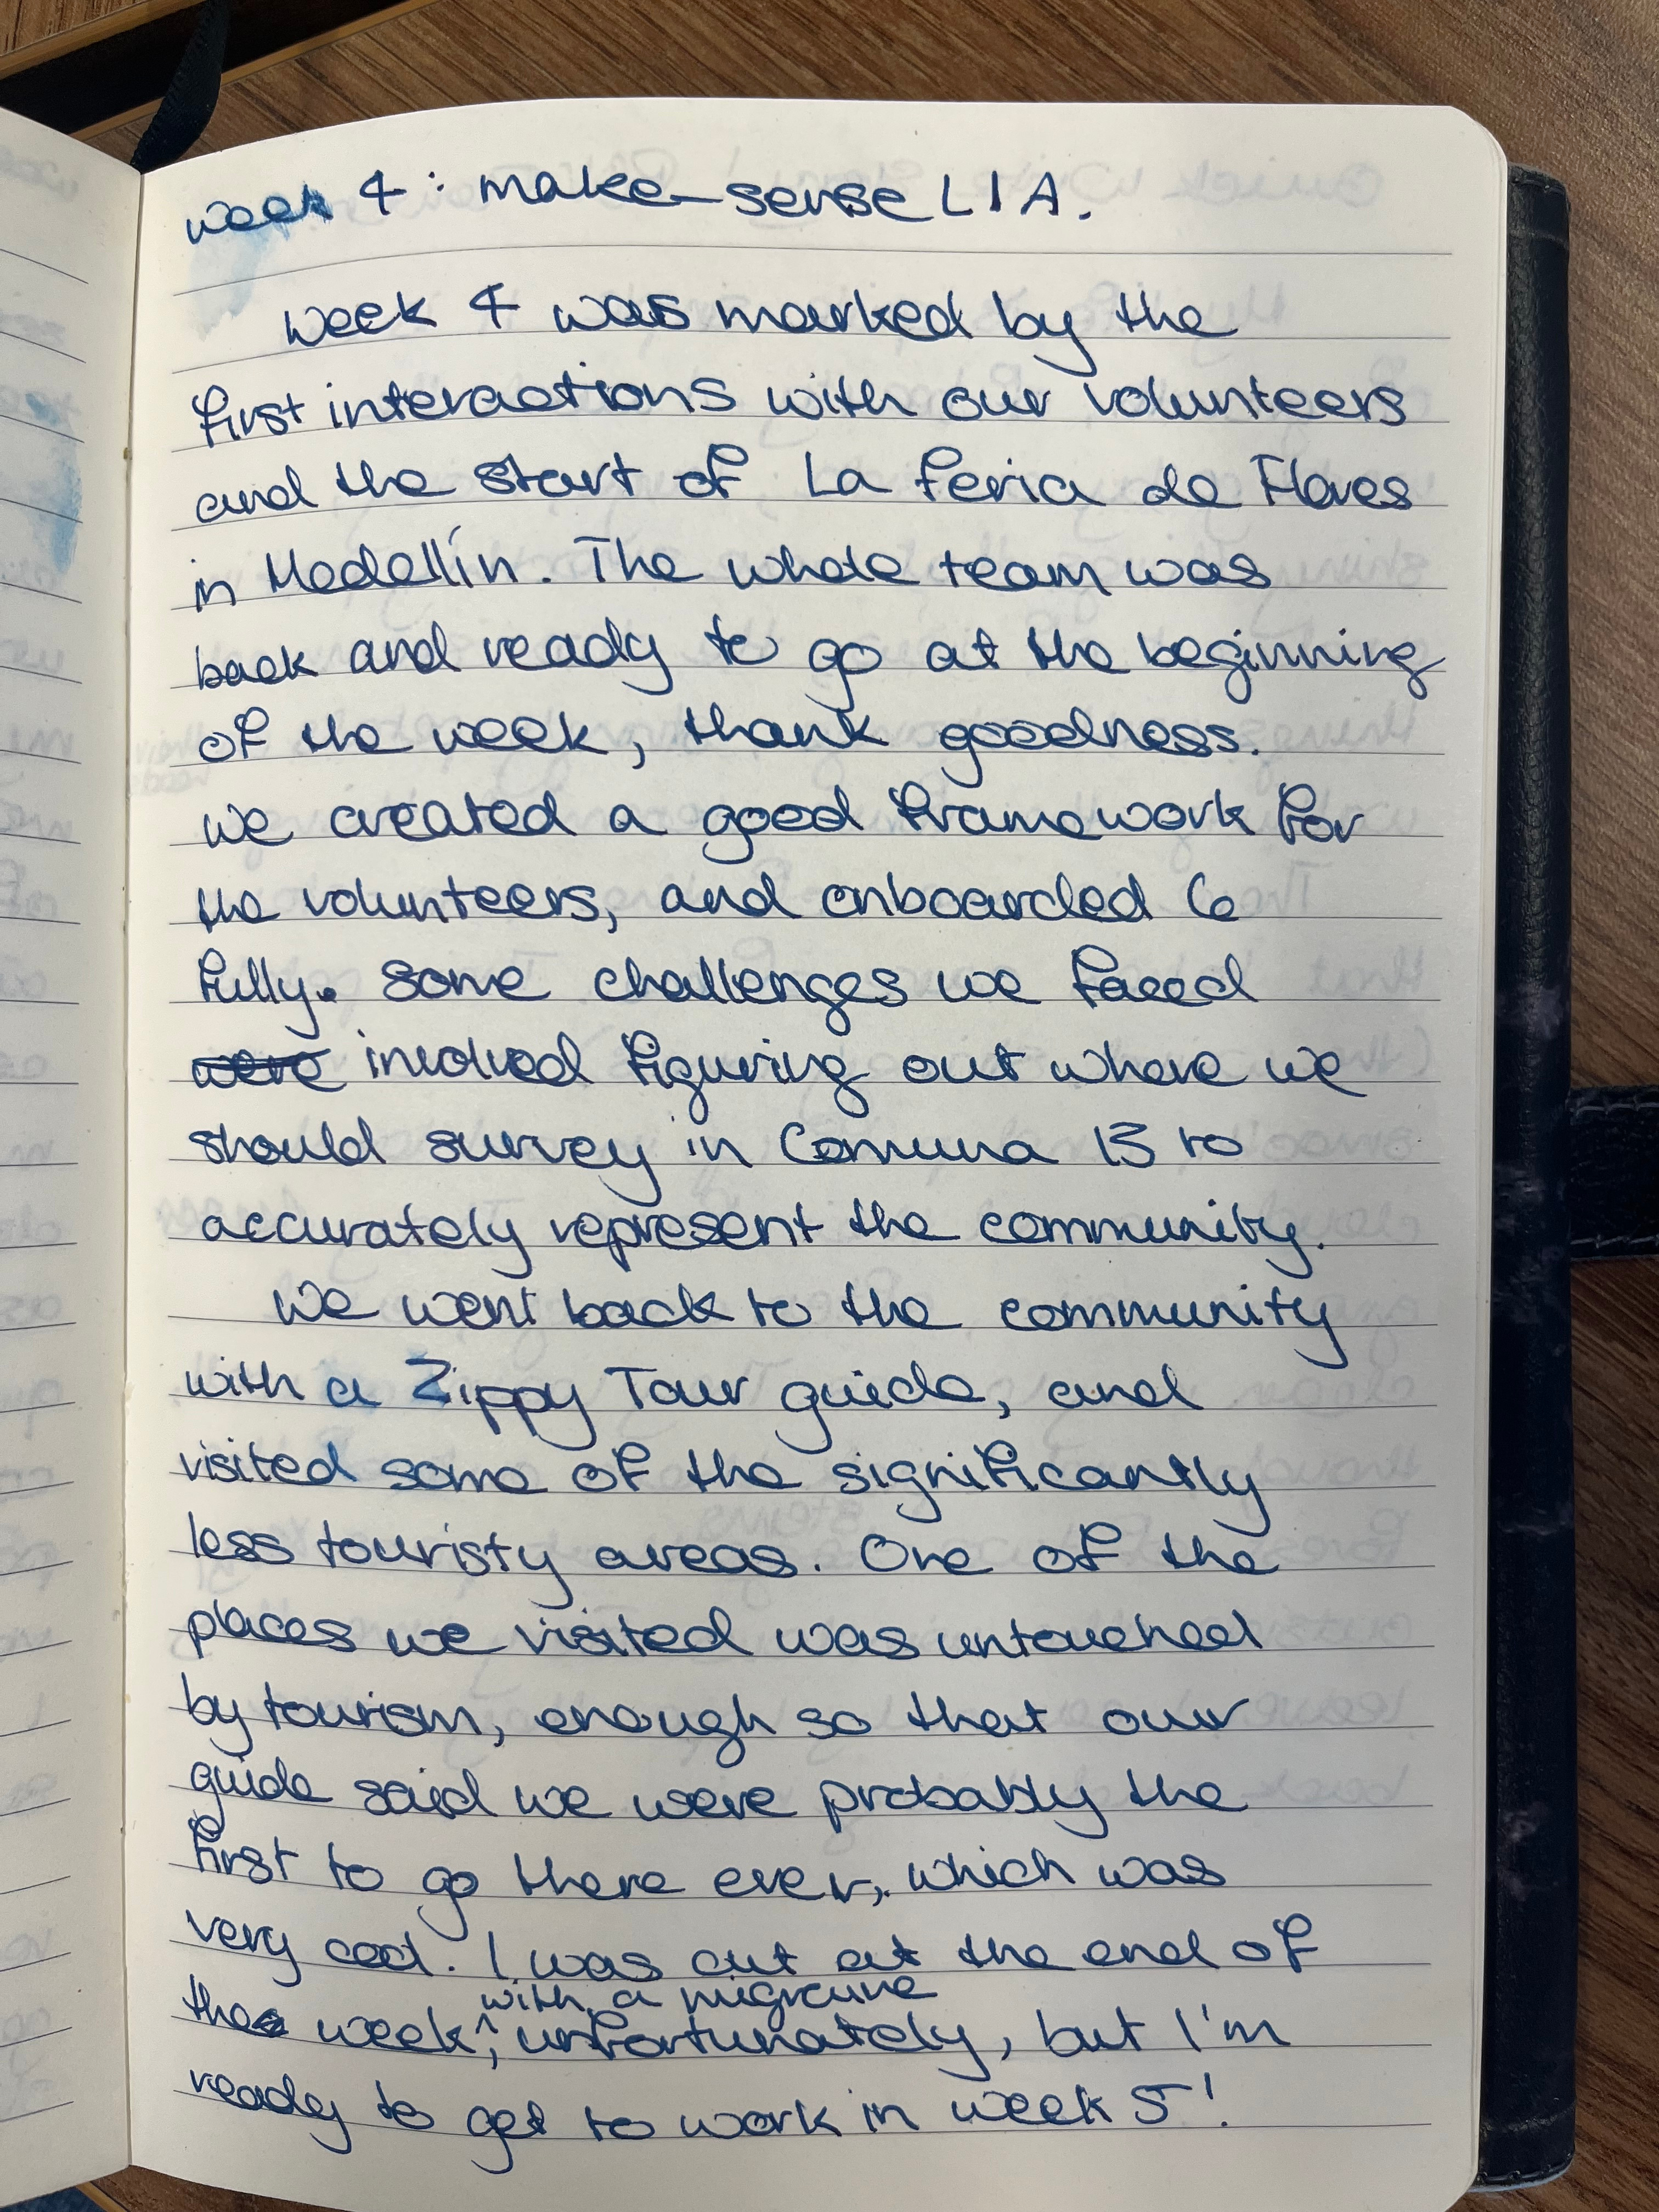 week 4: make-sense LIA.
week 4 was marked by the
first interactions with our volunteers
and the start of La feria de Flores
in Medellín. The whole team was
back and ready to go at the beginning
of the week, thank goodness.
we created a good framework for
the volunteers, and onboarded 6
fully. Some challenges we faced
were involved figuring out where we
should survey in Comuna 13 to
accurately represent the community.
We went back to the community
with a Zippy Tour guide, and
visited some of the significantly
less touristy areas. One of the
places we visited was untouched
by tourism, enough so that our
guide said we were probably the
first to go there ever, which was
very cool. I was out at the end of
with a migraine
the week, unfortunately, but I'm
ready to get to work in week 5!